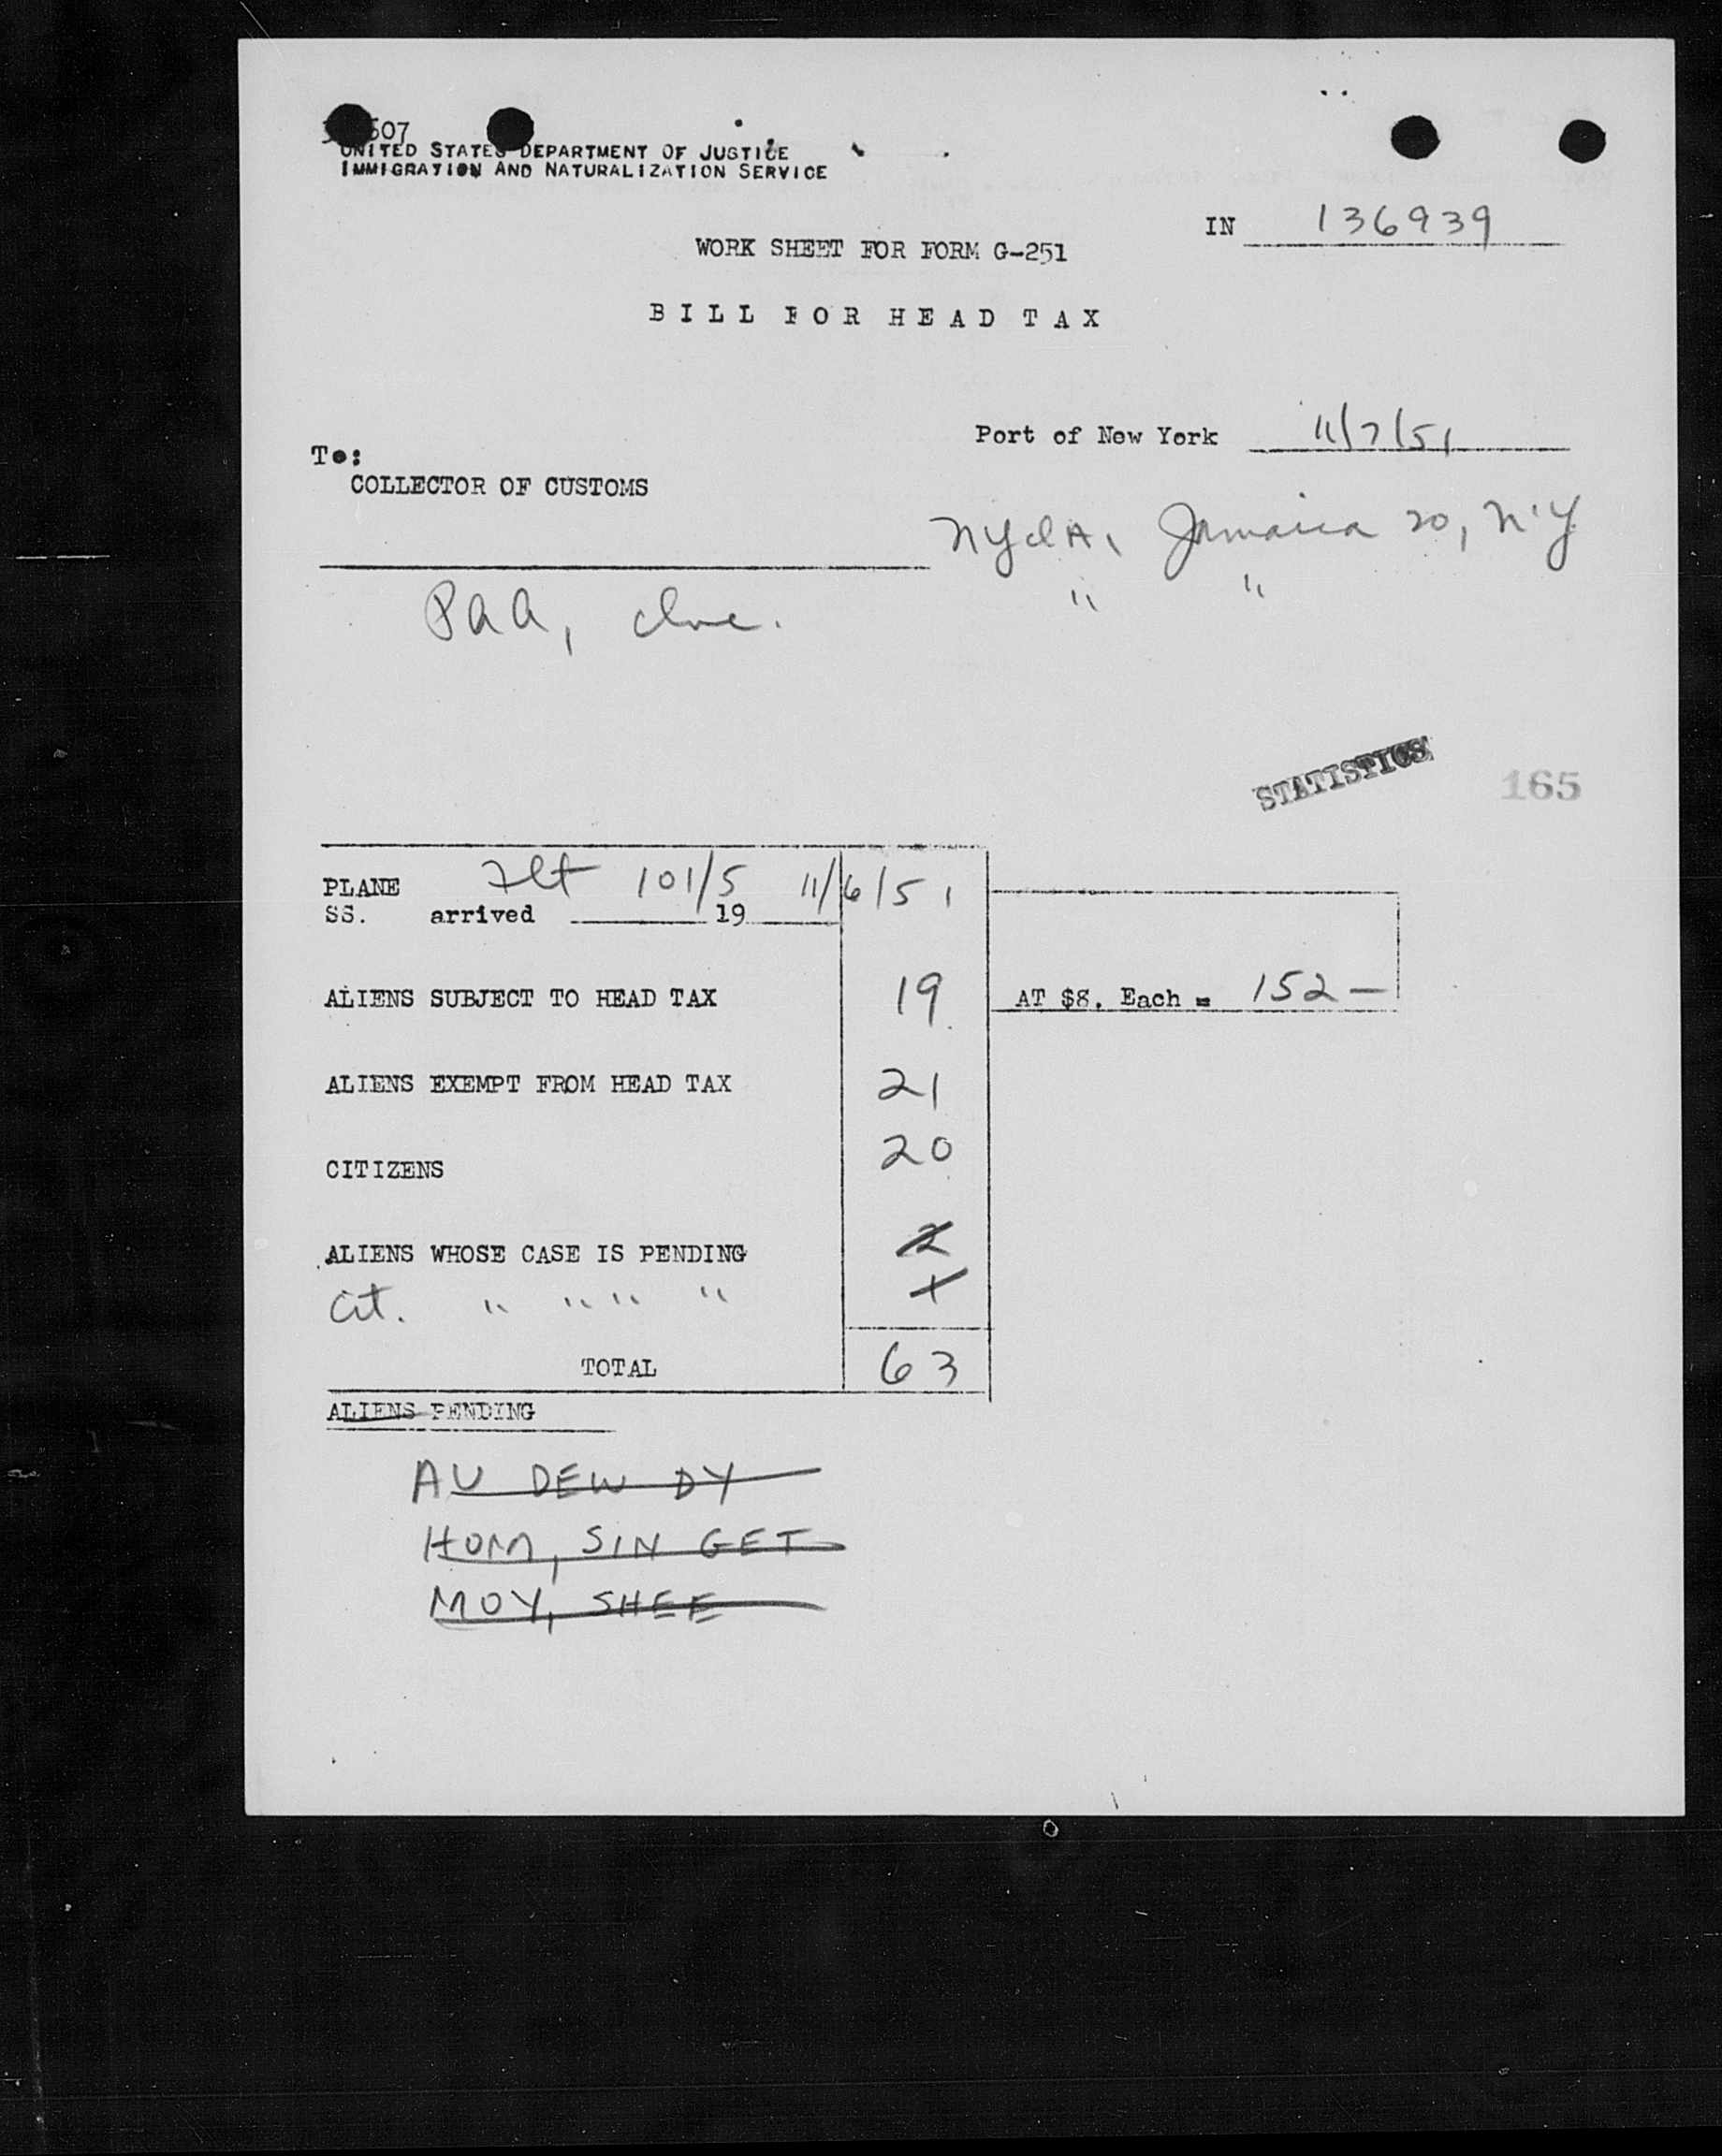 507
UNITED STATES DEPARTMENT OF JUSTICE
IMMIGRATION AND NATURALIZATION SERVICE
IN 136939
WORK SHEET FOR FORM G-251
BILL FOR HEAD TAX
Port of New York 11/7/51
To:
COLLECTOR OF CUSTOMS
NYIA, Jamaica 20, N.Y
PAA, Inc. " "
STATISTICS 165
PLANE Flt 101/5 11/6/51
SS. arrived 19
ALIENS SUBJECT TO HEAD TAX 19 AT $8. Each = 152 —
ALIENS EXEMPT FROM HEAD TAX 21
CITIZENS 20
ALIENS WHOSE CASE IS PENDING 2
Cit. " " " " 1
TOTAL 63
ALIENS PENDING
AU DEW DY
HOM, SIN GET
MOY, SHEE